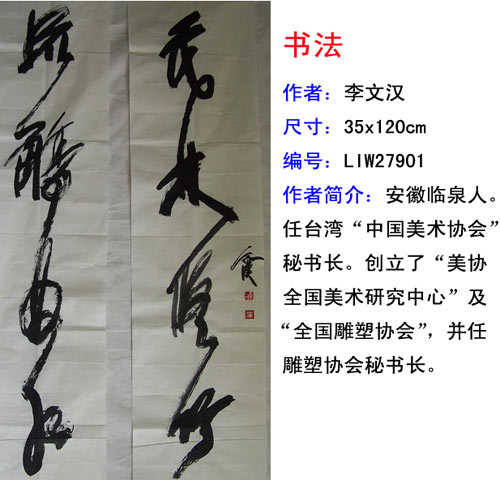 茂林修竹
流觴曲水
书法
作者：李文汉
尺寸：35x120cm
编号：LIW27901
作者简介：安徽临泉人。
任台湾“中国美术协会”
秘书长。创立了“美协
全国美术研究中心”及
“全国雕塑协会”，并任
雕塑协会秘书长。